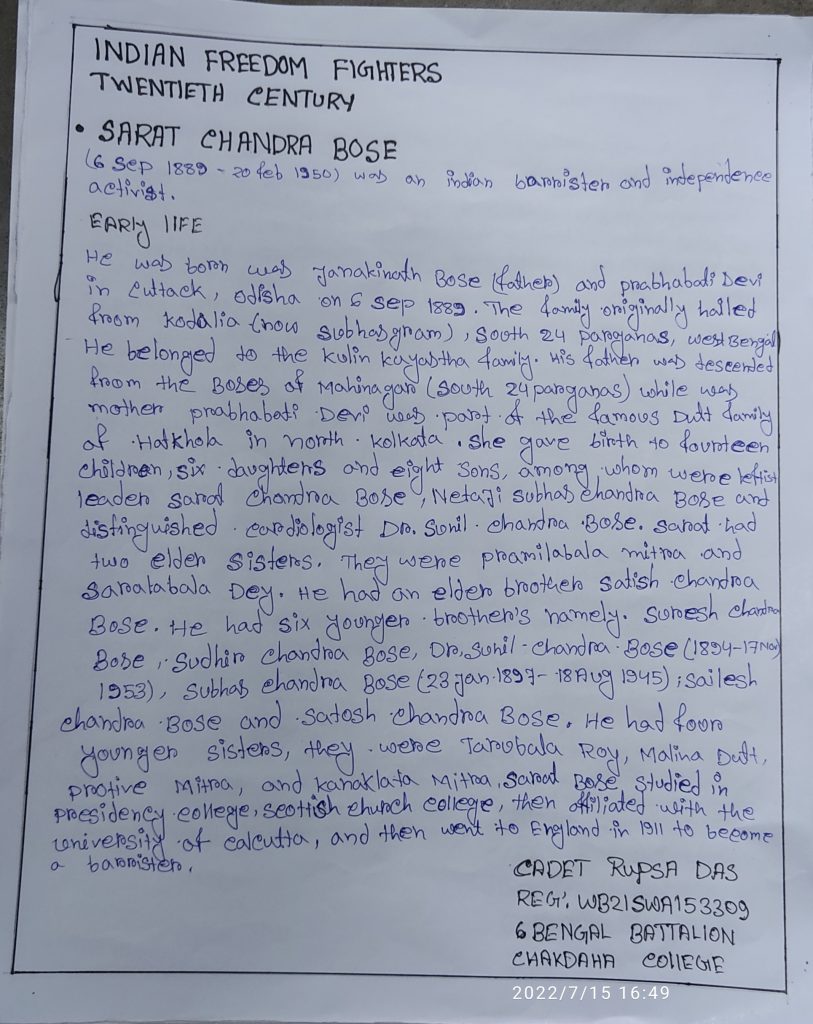 INDIAN FREEDOM FIGHTERS
TWENTIETH CENTURY
• SARAT CHANDRA BOSE
(6 Sep 1889 - 20 feb 1950) was an indian barrister and independence
activist.
EARLY LIFE
He was born was Janakinath Bose (father) and prabhabati Devi
in Cuttack, odisha on 6 sep 1889. The family originally hailed
from Kodalia (now Subhasgram), South 24 paroganas, west Bengal
He belonged to the kulin kayastha family. His father was descended
from the Boses of Mahinagar (South 24 paroganas) while was
mother prabhabati Devi was part of the famous Dutt family
of Hatkhola in north kolkata. She gave birth to fourteen
children, six daughters and eight sons, among whom were leftist
leader sarat Chandra Bose, Netaji subhas chandra Bose and
distinguished cardiologist Dr. Sunil chandra Bose. sarat had
two elder sisters. They were pramilabala mitra and
Saratabala Dey. He had an elder brother satish chandra
Bose. He had six younger brother's namely. Suresh chandra
Bose, Sudhir Chandra Bose, Dr. Sunil-chandra Bose (1894-17 Nov
1953), Subhas chandra Bose (23 jan 1897- 18 Aug 1945), sailesh
chandra Bose and satosh chandra Bose. He had four
younger sisters, they were Tarubala Roy, Malina Dutt,
protive Mitra, and kanaklata Mitra. Sarat Bose studied in
presidency college, scottish church college, then affiliated with the
university of calcutta, and then went to England in 1911 to become
a barrister.
CADET RUPSA DAS
REG'. WB21SWA153309
6 BENGAL BATTALION
CHAKDAHA COLLEGE
2022/7/15 16:49